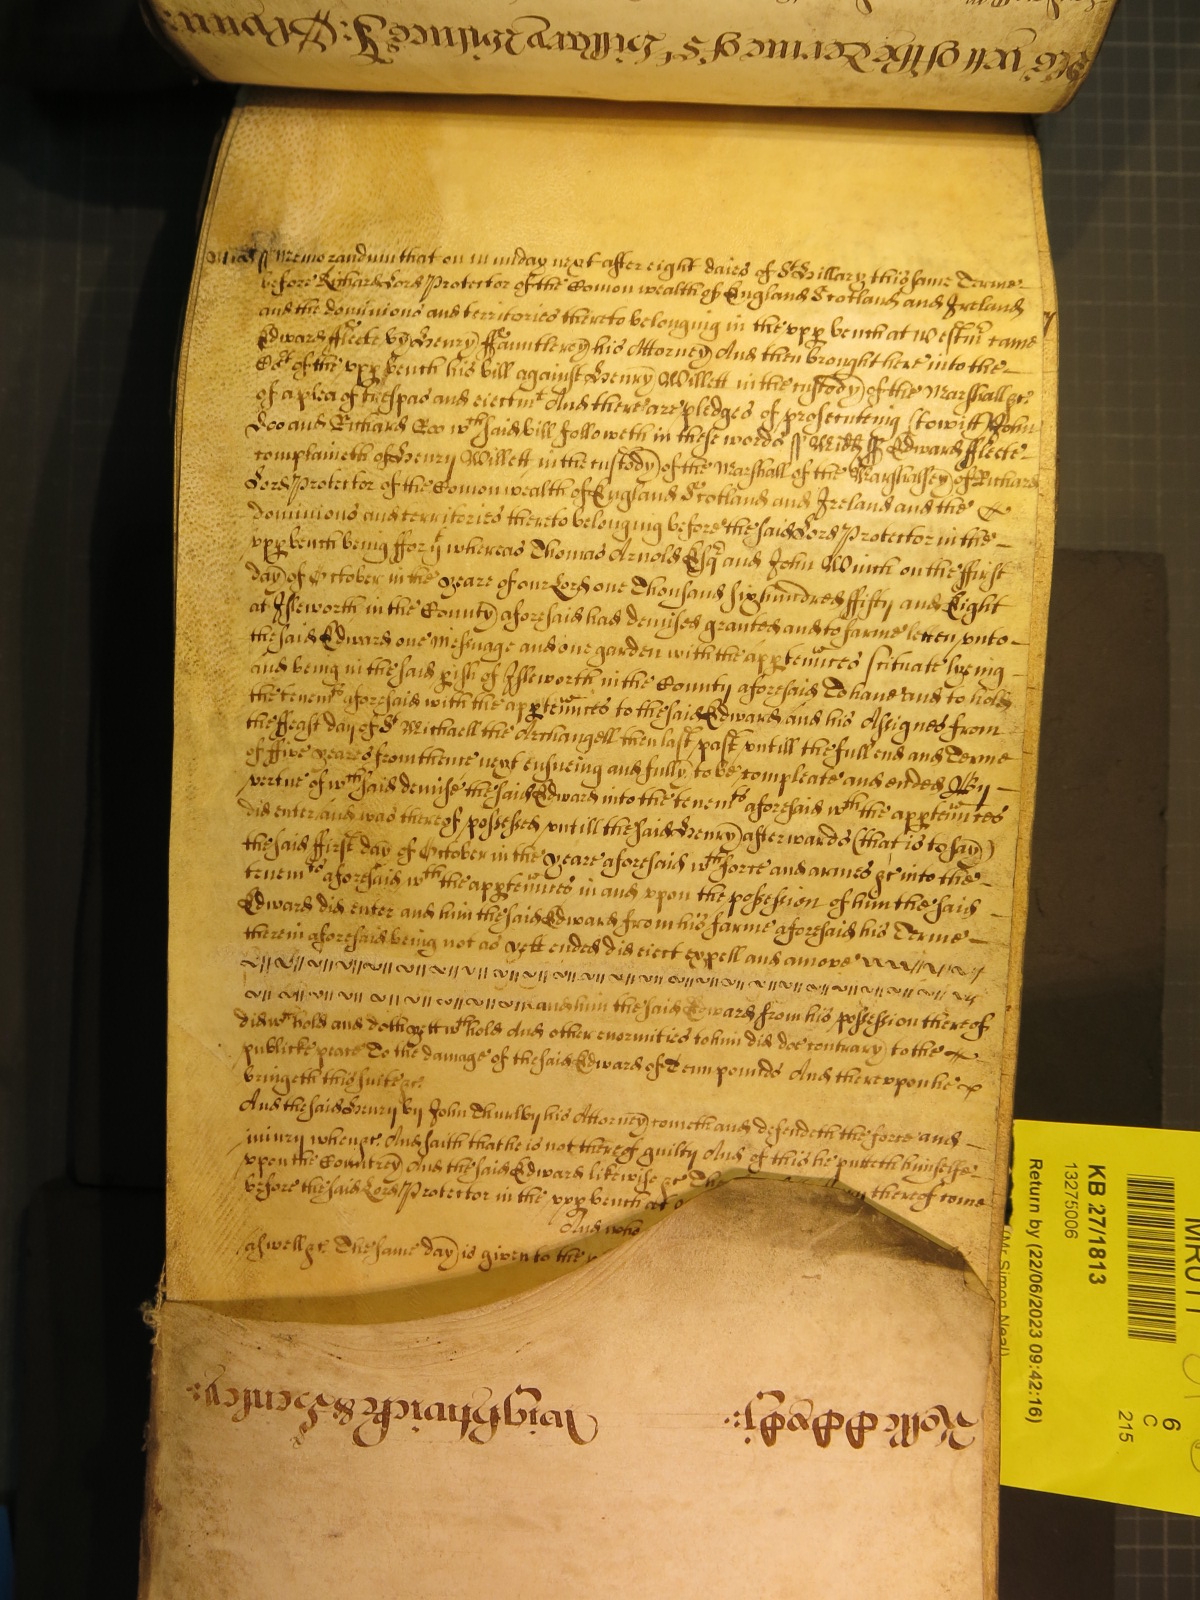 Midd ss Memorandum that on munday next after eight daies of St Hillary this same Terme
before Richard Lord Protector of the Comon wealth of England Scotland and Ireland
and the dominions and territories thereto belonging in the vpp bench at Westmr came
Edward fflecte by Henry his Attorney And then brought here into the
Crt of the vpp bench his bill against Henry Willett in the custody of the Marshall &c
of a plea of trespas and eiectmt And there are pledges of prosecuteing (to witt) John
Doo and Richard Roo wch said bill followeth in these words ss Midd ss Edward fflecte
complaineth of Henry Willett in the custody of the Marshall of the Marshalsey of Richard
Lord Protector of the Comonwealth of England Scotland and Ireland and the
dominions and territories thereto belonging before the said Lord Protector in the
vpp bench being ffor yt whereas Thomas Arnold Esqr and John Winch on the ffirst
day of October in the yeare of our Lord one Thousand six hundred ffifty and Eight
at Isleworth in the County aforesaid had demised granted and to farme letten vnto
the said Edward one Messuage and one garden with the apptennces scituate lyeing
and being in the said pish of Isleworth in the County aforesaid To haue and to hold
the tenemts aforesaid with the apptennces to the said Edward and his Assignes from
the ffeast day of St Michaell the Archangell then last past vntill the full end and Terme
of ffive yeares from thence next ensueing and fully to be compleate and ended By
vertue of wch said demise the said Edward into the tenemts aforesaid wth the apptennces
did enter and was thereof possessed vntill the said Henry afterwards (that is to say)
the said ffirst day of October in the yeare aforesaid wth force and armes &c into the
tenemts aforesaid wth the apptennces in and vpon the possession of him the said
Edward did enter and him the said Edward from his farme aforesaid his Terme
therein aforesaid being not as yett ended did eiect expell and amove
and him the said Edward from his possession thereof
did wthhold and doth yett wthhold And other enormities to him did doe contrary to the
publicke peace To the damage of the said Edward of Tenn pounds And therevpon he
bringeth this suite &c
And the said Henry by John Thurlby his Attorney cometh and defendeth the force and
iniury when &c And saith that he is not thereof guilty And of this he putteth himselfe
vpon the Countrey And the said Edward likewise &c thereof come
before the said Lord Protector in the vpp bench at
And who
aswell &c The same day is given to the
Wightwicke & Henley
KB 27/1813
13275006
Return by (22/06/2023 09:42:16)
(Mr Simon Neal)
6
C
215